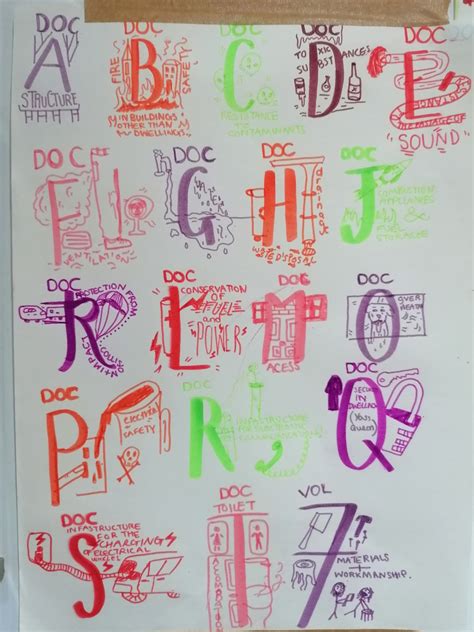 DOC
A
STRUCTURE
DOC
B
FIRE
SAFETY
IN BUILDINGS
OTHER THAN
DWELLINGS
DOC
C
RESISTANCE
TO
CONTAMINANTS
DOC
D
TOXIC
SUBSTANCES
DOC
E
SOUND
DOC
F
VENTILATION
DOC
G
DOC
H
drainage
WASTE DISPOSAL
DOC
J
COMBUSTION
APPLIANCES
&
FUEL
STORAGE
DOC
PROTECTION FROM
COLLISION
+ IMPACT
DOC
L
CONSERVATION
OF
FUEL
+
POWER
DOC
M
ACESS
DOC
O
OVER
HEATING
DOC
P
ELECTRICAL
SAFETY
DOC
R
INFASTRUCTURE
FOR ELECTRONIC
DOC
Q
SECURITY
IN
(Yass
Queen)
DOC
S
INFASTRUCTURE
FOR THE
CHARGING
OF ELECTRICAL
DOC
TOILET
T
VOL
7
MATERIALS
+
WORKMANSHIP.